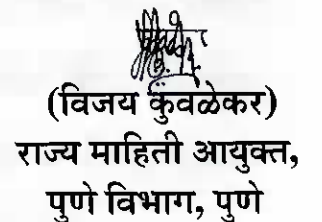 (विजय कुंवळेकर)
राज्य माहिती आयुक्त,
पुणे विभाग, पुणे